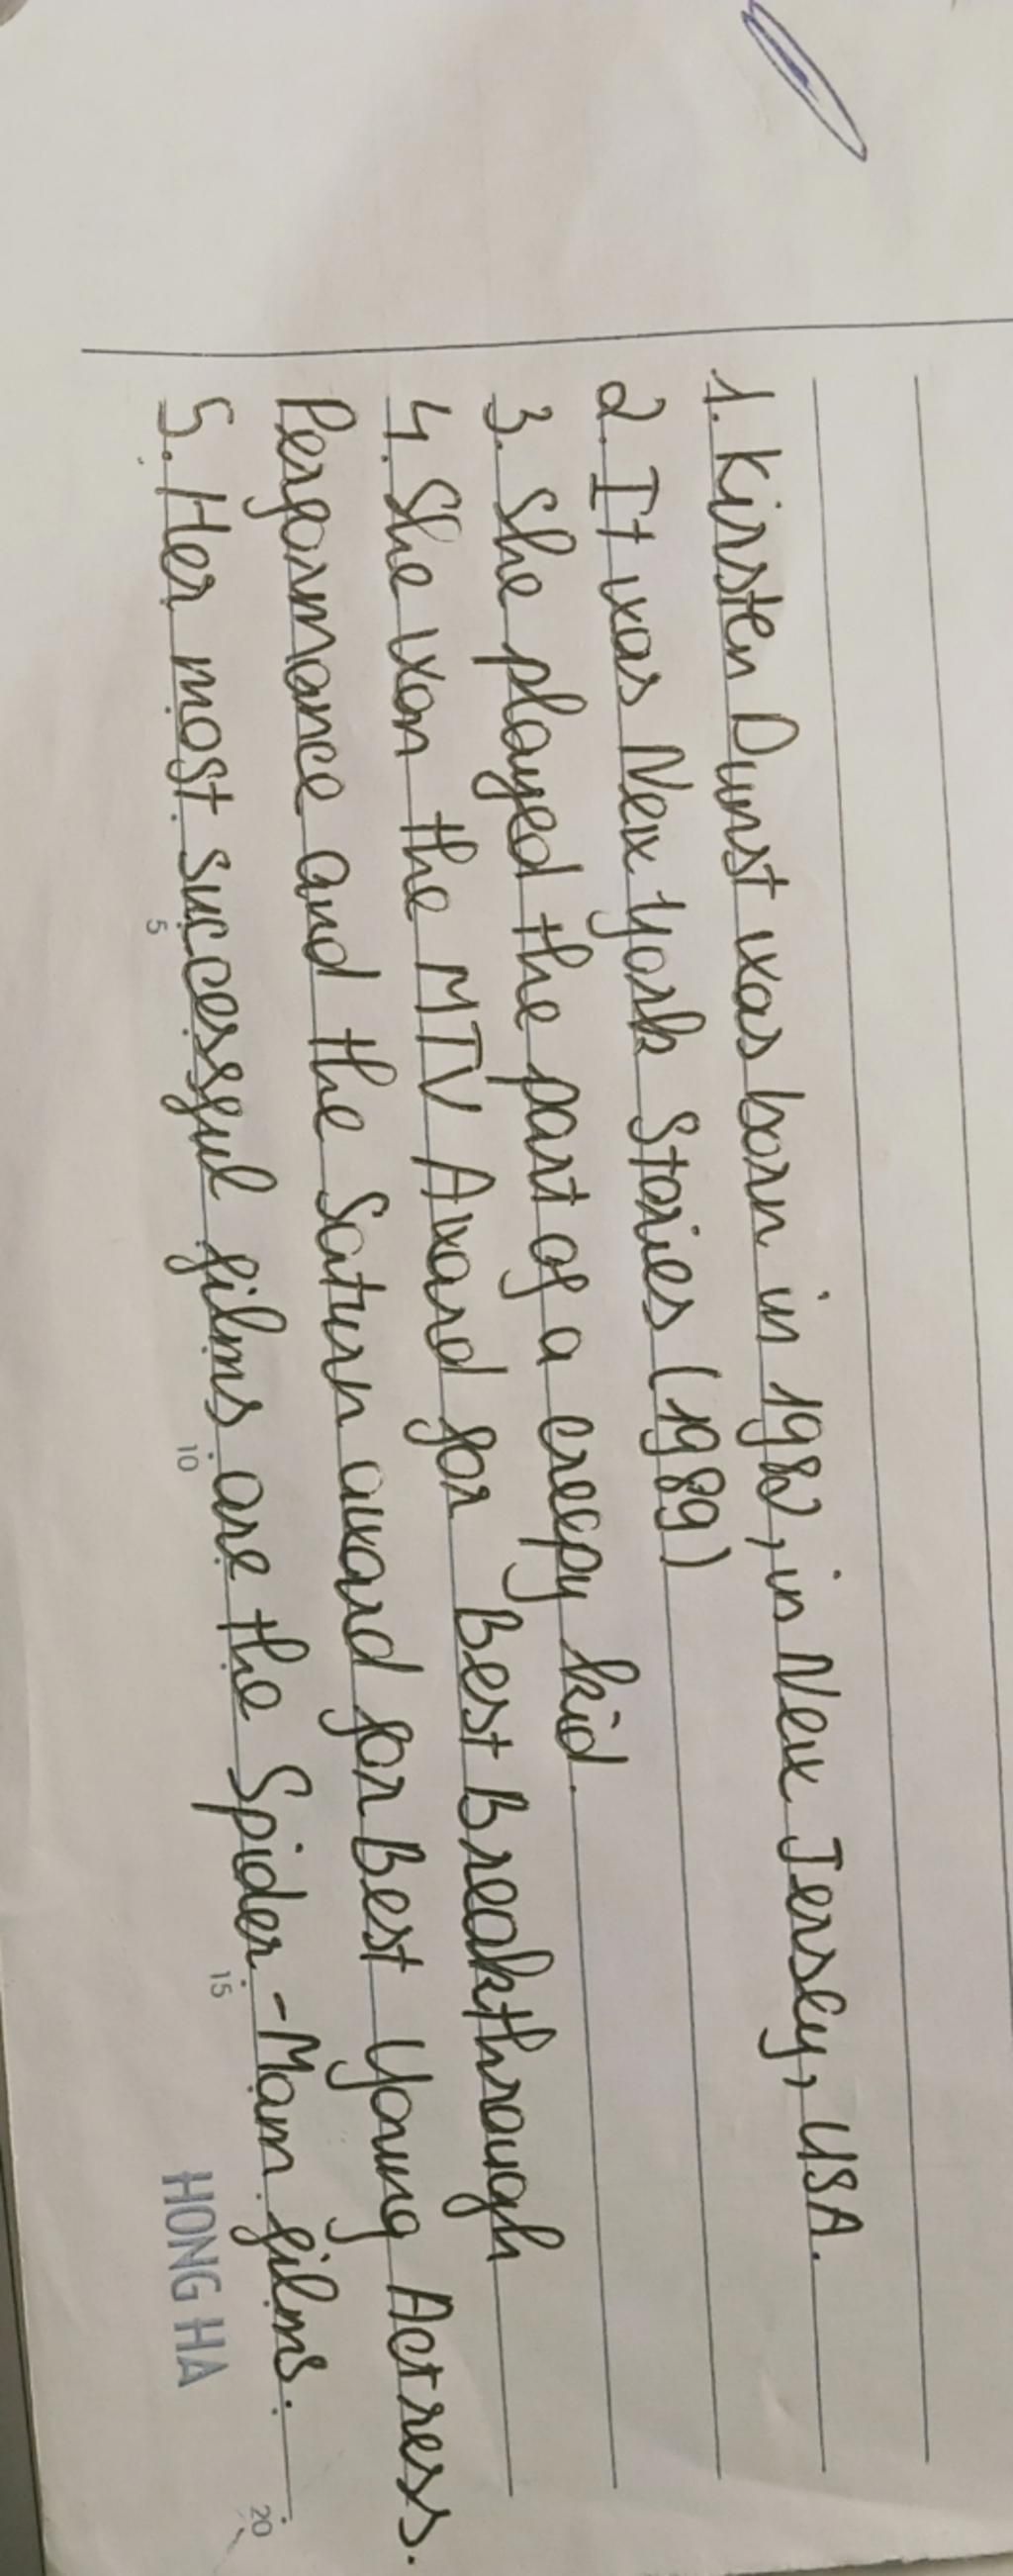 1. Kirsten Dunst was born in 1982, in New Jersey, USA.
2. It was New York Stories (1989)
3. She played the part of a creepy kid.
4. She won the MTV Award for Best Breakthrough
Performance and the Saturn award for Best Young Actress.
5. Her most successful films are the Spider-Man films.
5 10 15 20
HONG HA